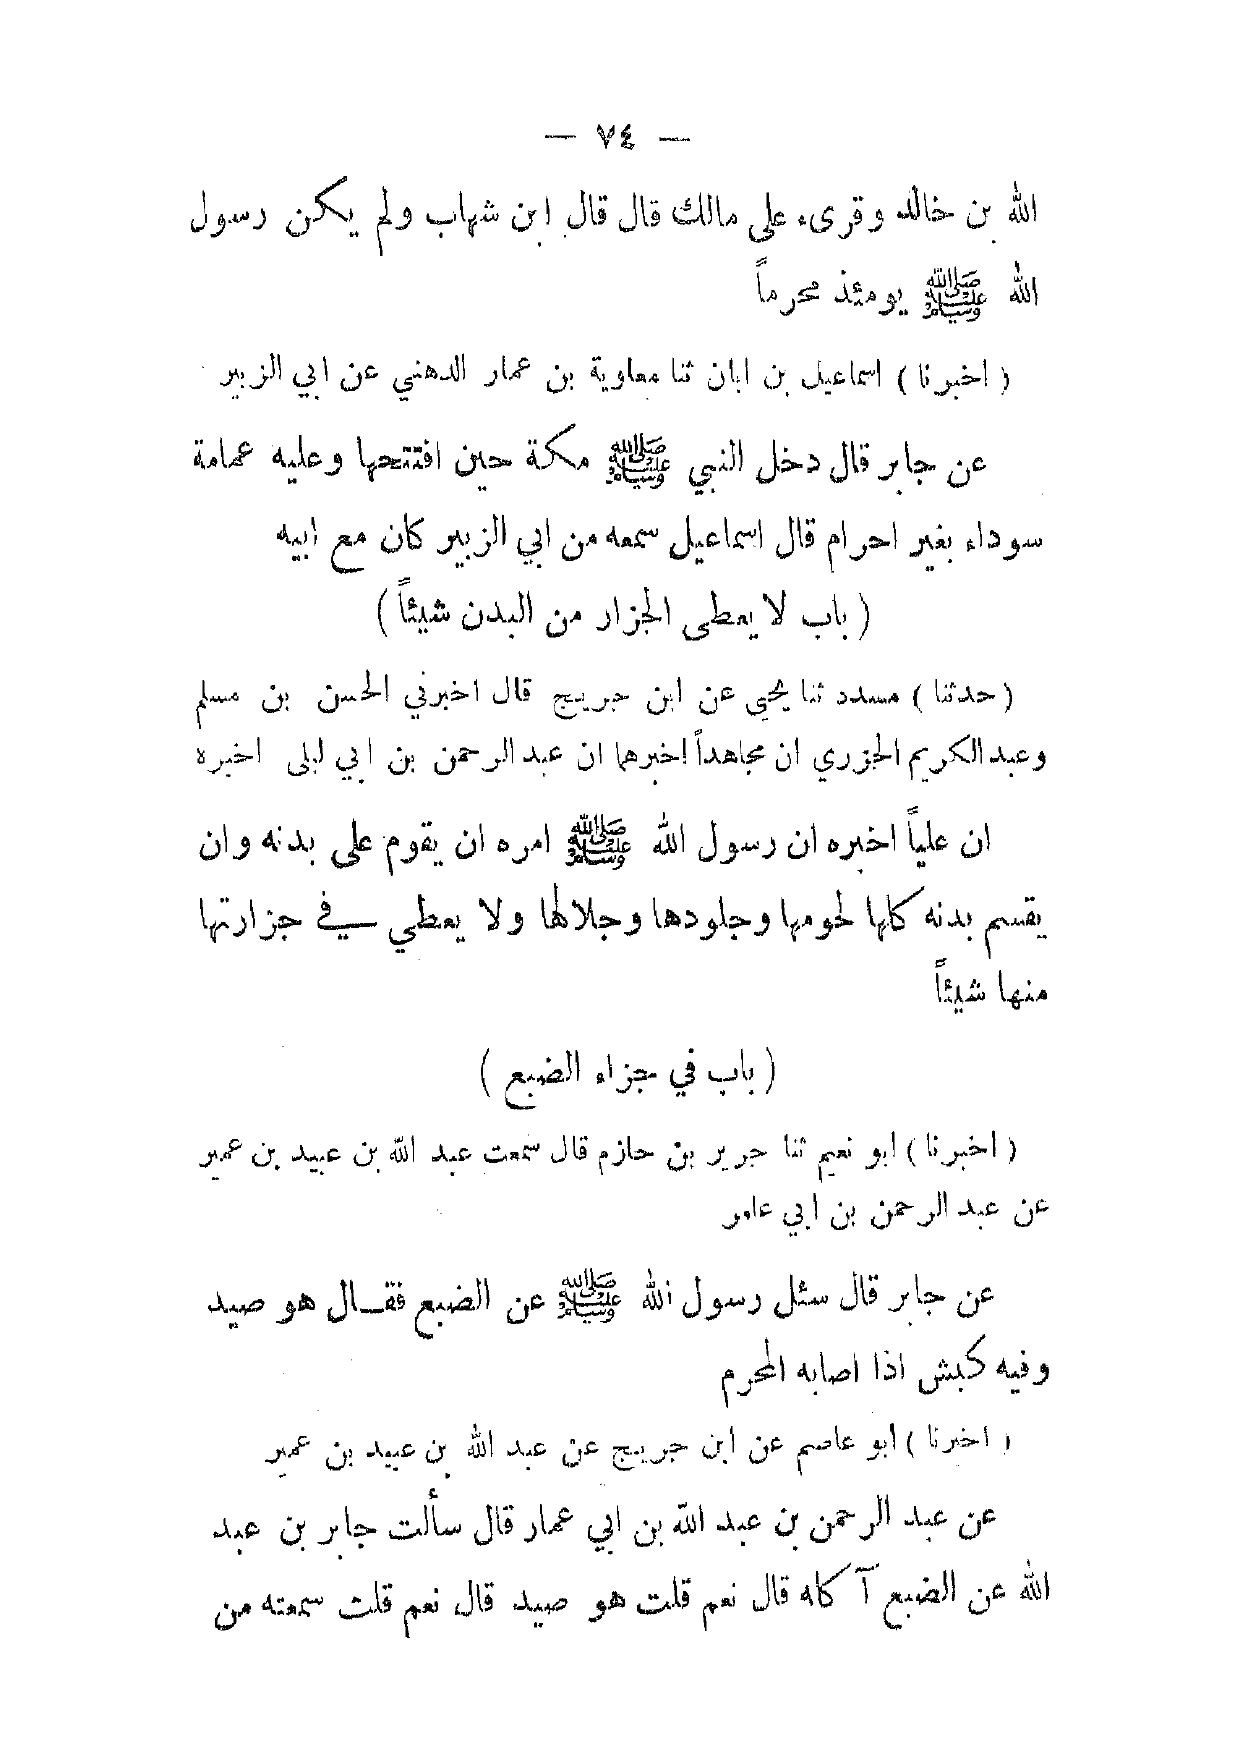 — ٧٤ —
الله بن خالد وقرىء على مالك قال قال ابن شهاب ولم يكن رسول
الله ﷺ يومئذ محرماً
( اخبرنا ) اسماعيل بن ابان ثنا معاوية بن عمار الدهني عن ابي الزبير
عن جابر قال دخل النبي ﷺ مكة حين افتتحها وعليه عمامة
سوداء بغير احرام قال اسماعيل سمعه من ابي الزبير كان مع ابيه
( باب لا يعطى الجزار من البدن شيئاً )
( حدثنا ) مسدد ثنا يحيى عن ابن جريج قال اخبرني الحسن بن مسلم
وعبد الكريم الجزري ان مجاهداً اخبرهما ان عبد الرحمن بن ابي ليلى اخبره
ان علياً اخبره ان رسول الله ﷺ امره ان يقوم على بدنه وان
يقسم بدنه كلها لحومها وجلودها وجلالها ولا يعطي في جزارتها
منها شيئاً
( باب في جزاء الضبع )
( اخبرنا ) ابو نعيم ثنا جرير بن حازم قال سمعت عبد الله بن عبيد بن عمير
عن عبد الرحمن بن ابي عامر
عن جابر قال سئل رسول الله ﷺ عن الضبع فقال هو صيد
وفيه كبش اذا اصابه المحرم
( اخبرنا ) ابو عاصم عن ابن جريج عن عبد الله بن عبيد بن عمير
عن عبد الرحمن بن عبد الله بن ابي عمار قال سألت جابر بن عبد
الله عن الضبع آكله قال نعم قلت هو صيد قال نعم قلت سمعته من